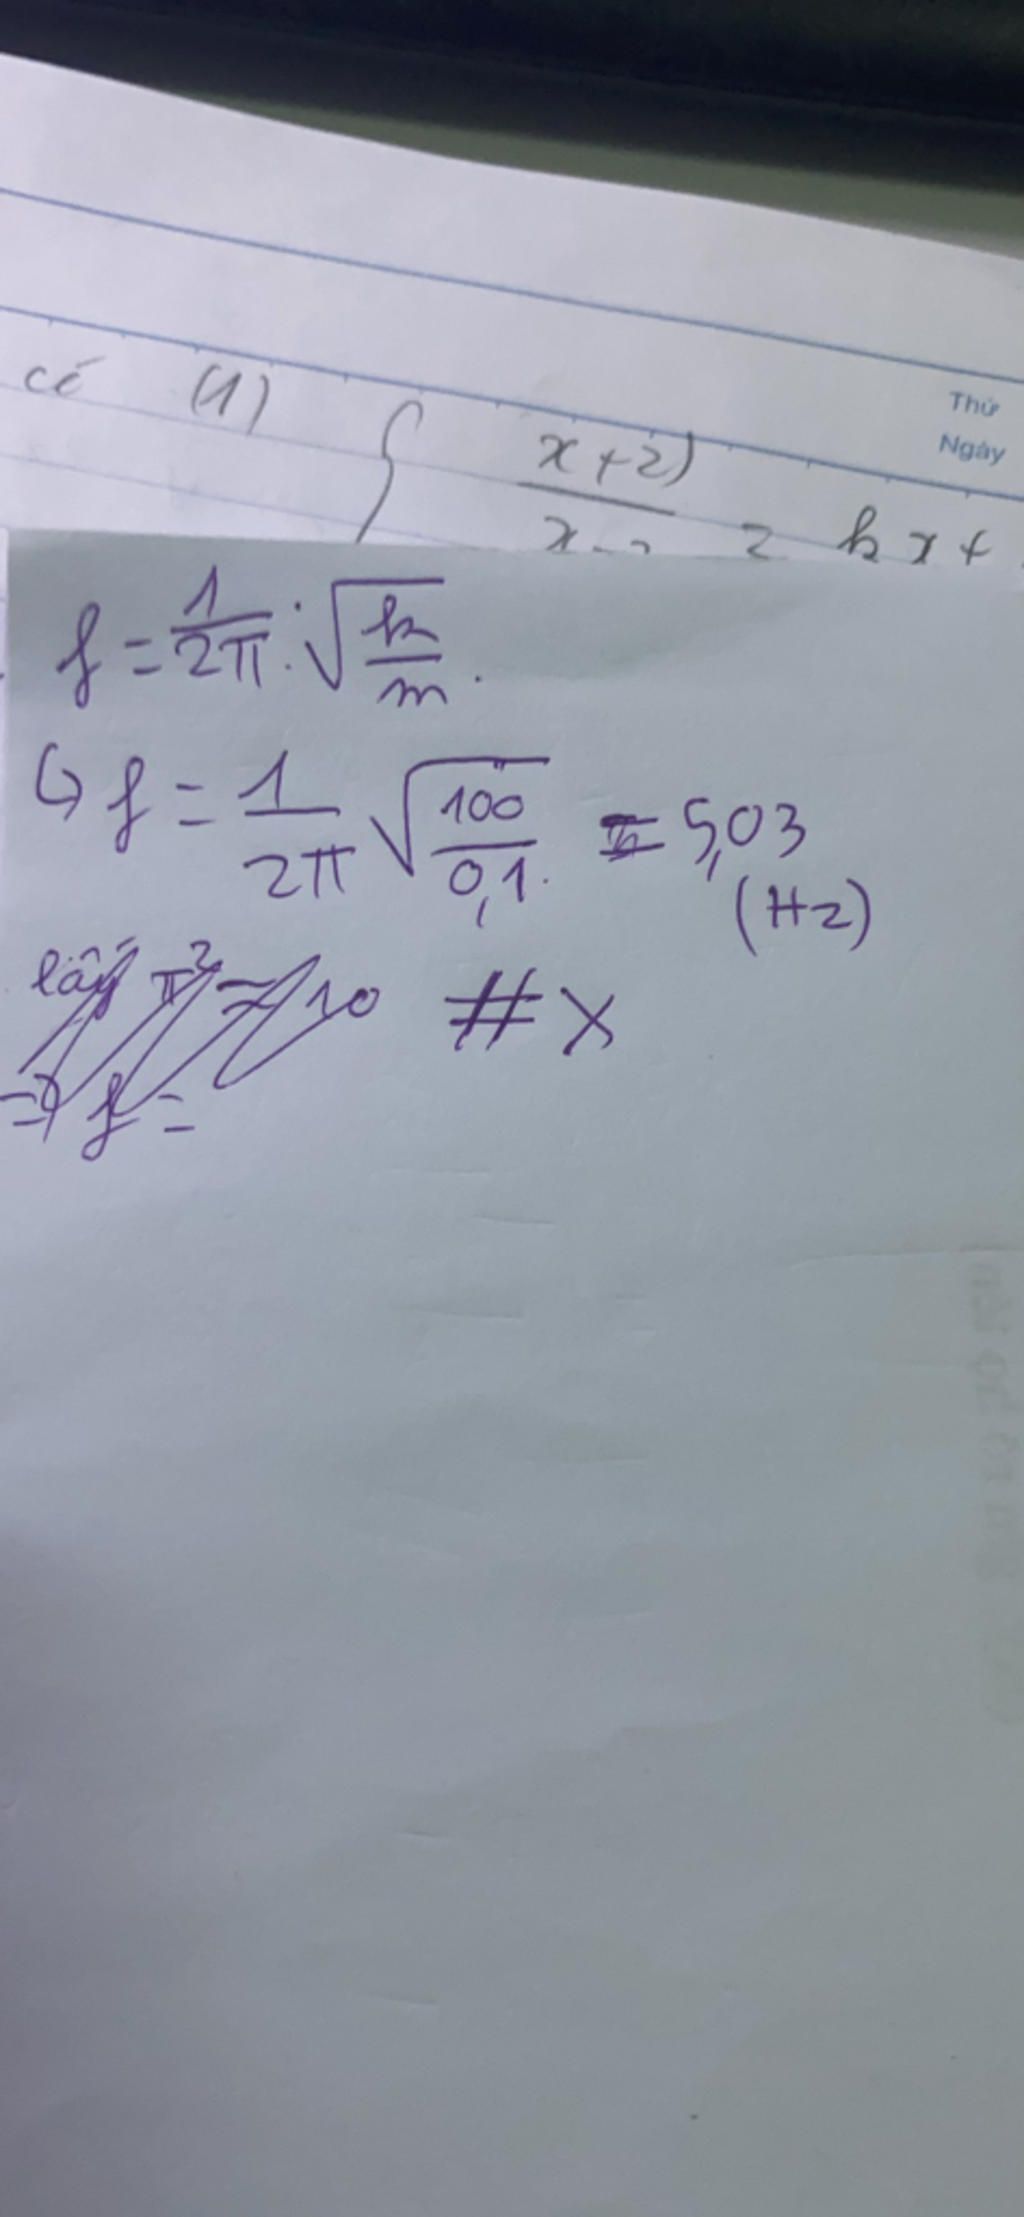 Thứ
Ngày
có (1) { x+2) / x-2 = kx+
f = 1/2π . √k/m .
↳ f = 1/2π √100/0,1 = 5,03
(Hz)
lấy π² ≈ 10 # X
=> f =